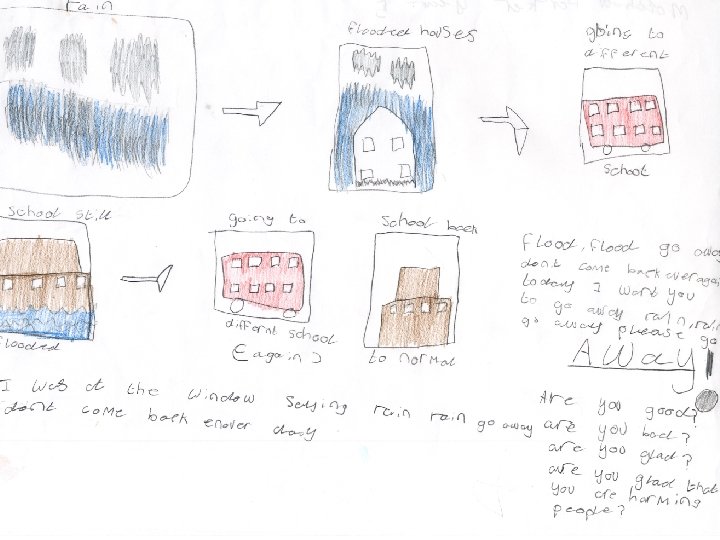 Rain
flooded houses
going to
different
school
school still
flooded
going to
differnt school
(again)
School back
to normal
flood, flood go away
dont come back ever again
today I want you
to go away rain, rain
go away please go
AWay!
I was at the window saying rain rain go away
dont come back day
Are you good?
are you bad?
are you glad?
are you glad that
you are harming
people?